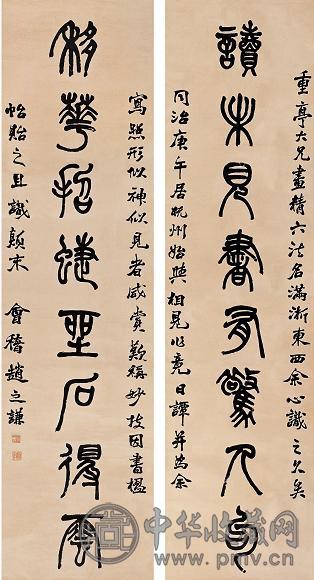 重亭大兄畫精六法名滿浙東西余心識之久矣
讀未見書有驚人句
同治庚午居杭州始與相見作竟日譚并為余
寫照形似神似見者咸賞歎稱妙因書楹
移華招蜨石得雲
帖貽之且識顛末 會稽趙之謙
中华收藏网
www.pmv.cn